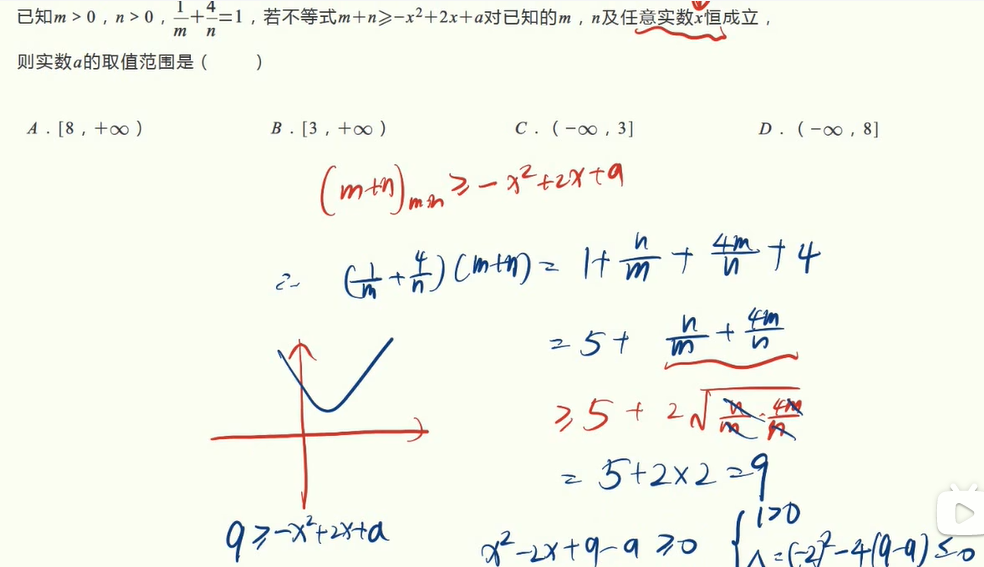 已知m > 0，n > 0，1/m+4/n=1，若不等式m+n⩾−x²+2x+a对已知的m，n及任意实数x恒成立，
则实数a的取值范围是（　　）
A．[8，+∞） B．[3，+∞） C．（−∞，3] D．（−∞，8]
(m+n)min ⩾ −x²+2x+a
(1/m + 4/n)(m+n) = 1 + n/m + 4m/n + 4
= 5 + n/m + 4m/n
⩾ 5 + 2√(n/m · 4m/n)
= 5+2×2 = 9
9 ⩾ −x²+2x+a
x²−2x+9−a ⩾ 0
{ 1>0
Δ=(−2)²−4(9−a) ≤ 0